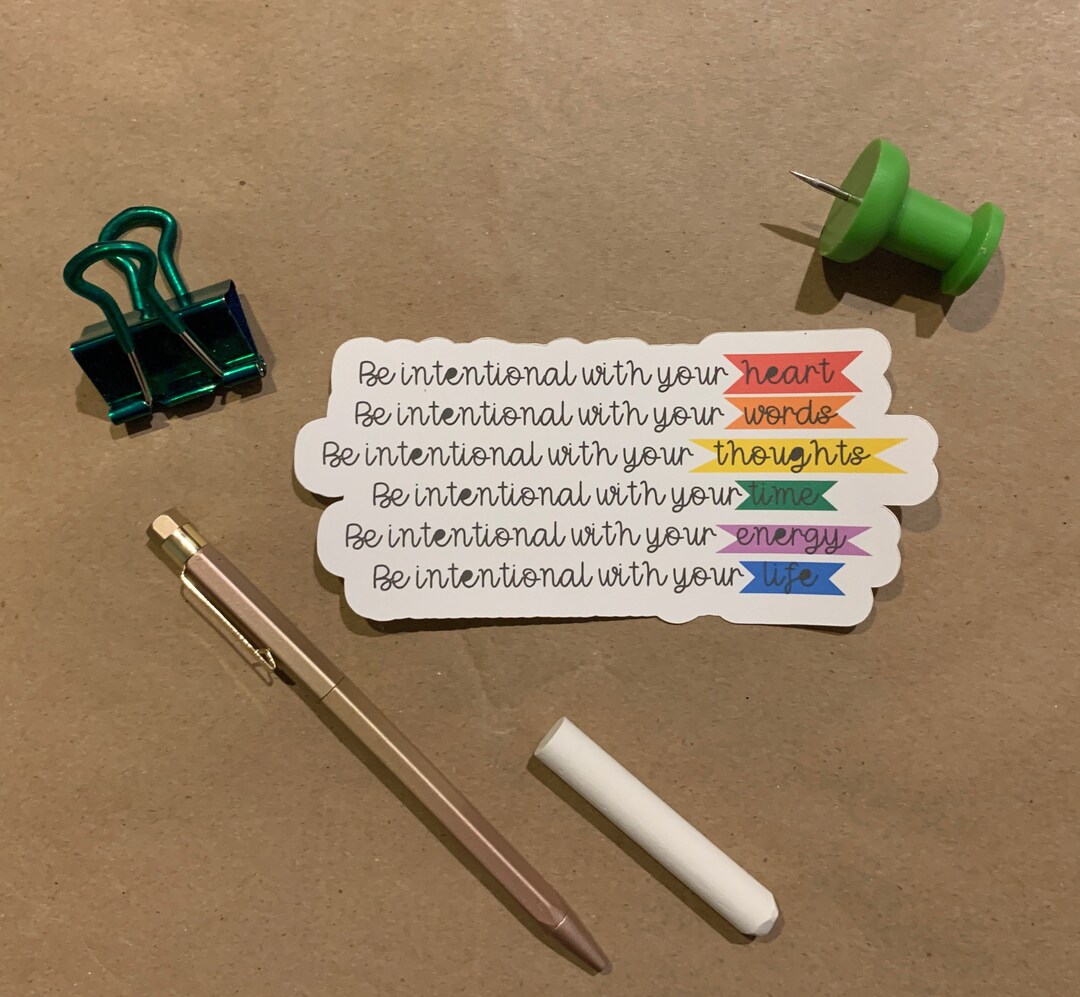 Be intentional with your heart
Be intentional with your words
Be intentional with your thoughts
Be intentional with your time
Be intentional with your energy
Be intentional with your life